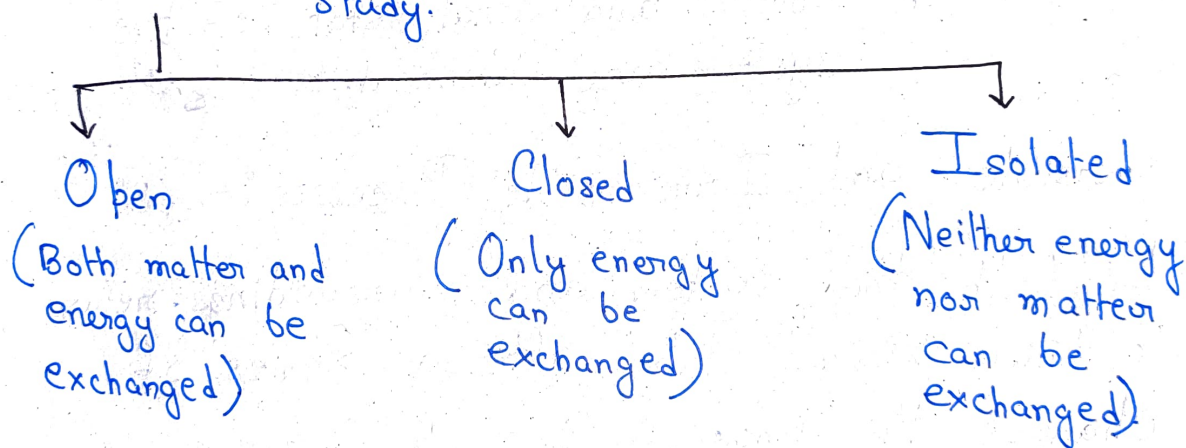 study.
Open
(Both matter and
energy can be
exchanged)
Closed
(Only energy
can be
exchanged)
Isolated
(Neither energy
nor matter
can be
exchanged)